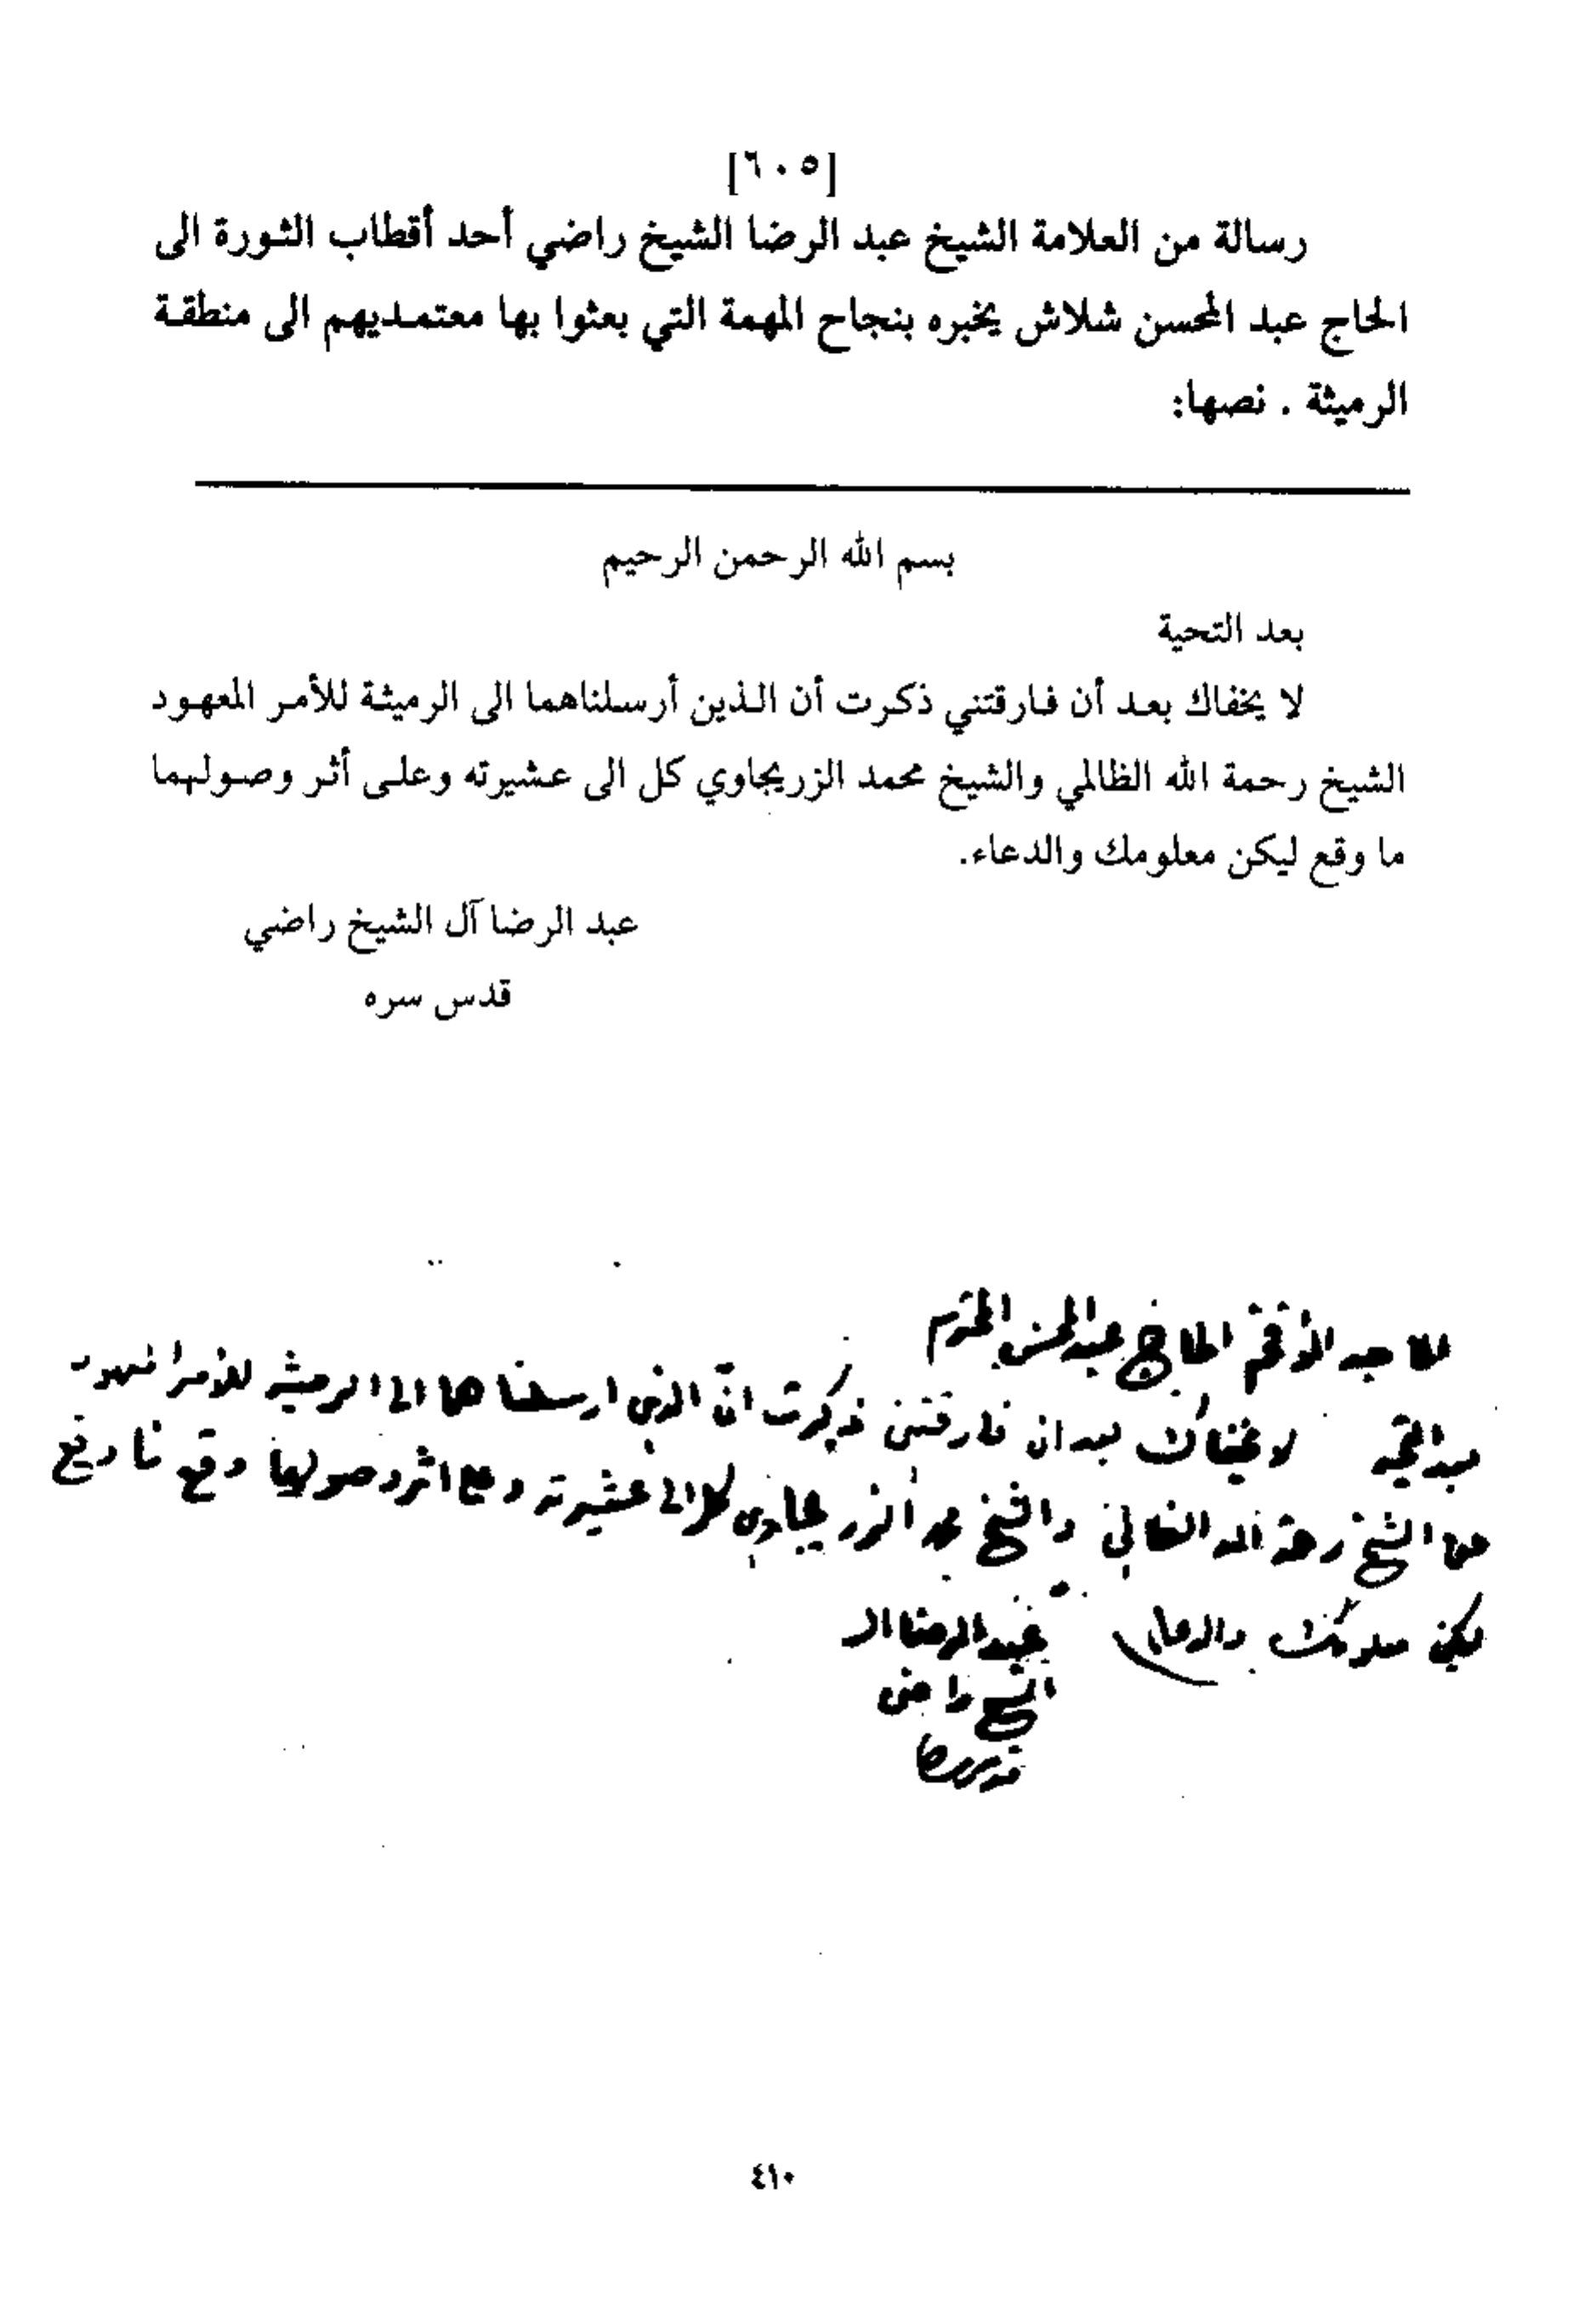 [٦٠٥]
رسالة من العلامة الشيخ عبد الرضا الشيخ راضي أحد أقطاب الثورة الى
الحاج عبد المحسن شلاش يخبره بنجاح المهمة التي بعثوا بها معتمديهم الى منطقة
الرميثة . نصها:
بسم الله الرحمن الرحيم
بعد التحية
لا يخفاك بعد أن فارقتني ذكرت أن الذين أرسلناهما الى الرميثة للأمر المعهود
الشيخ رحمة الله الظالمي والشيخ محمد الزريجاوي كل الى عشيرته وعلى أثر وصولهما
ما وقع ليكن معلومك والدعاء.
عبد الرضا آل الشيخ راضي
قدس سره
الحاج عبد المحسن المحترم
بعد التحية لا يخفاك بعد ان فارقتني ذكرت ان الذين ارسلناهما الى الرميثة للأمر المعهود
هما الشيخ رحمة الله الظالمي والشيخ محمد الزريجاوي كل الى عشيرته وعلى اثر وصولهما وقع ما وقع
ليكن معلومك والدعاء عبد الرضا ال
الشيخ راضي
٤١٠